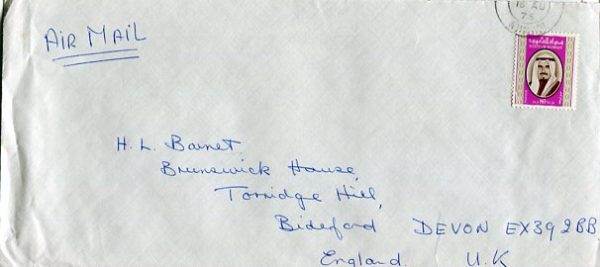 AIR MAIL
18 AU
75
H. L. Barnet
Brunswick House,
Torridge Hill,
Bideford DEVON EX39 2BB
England. U.K